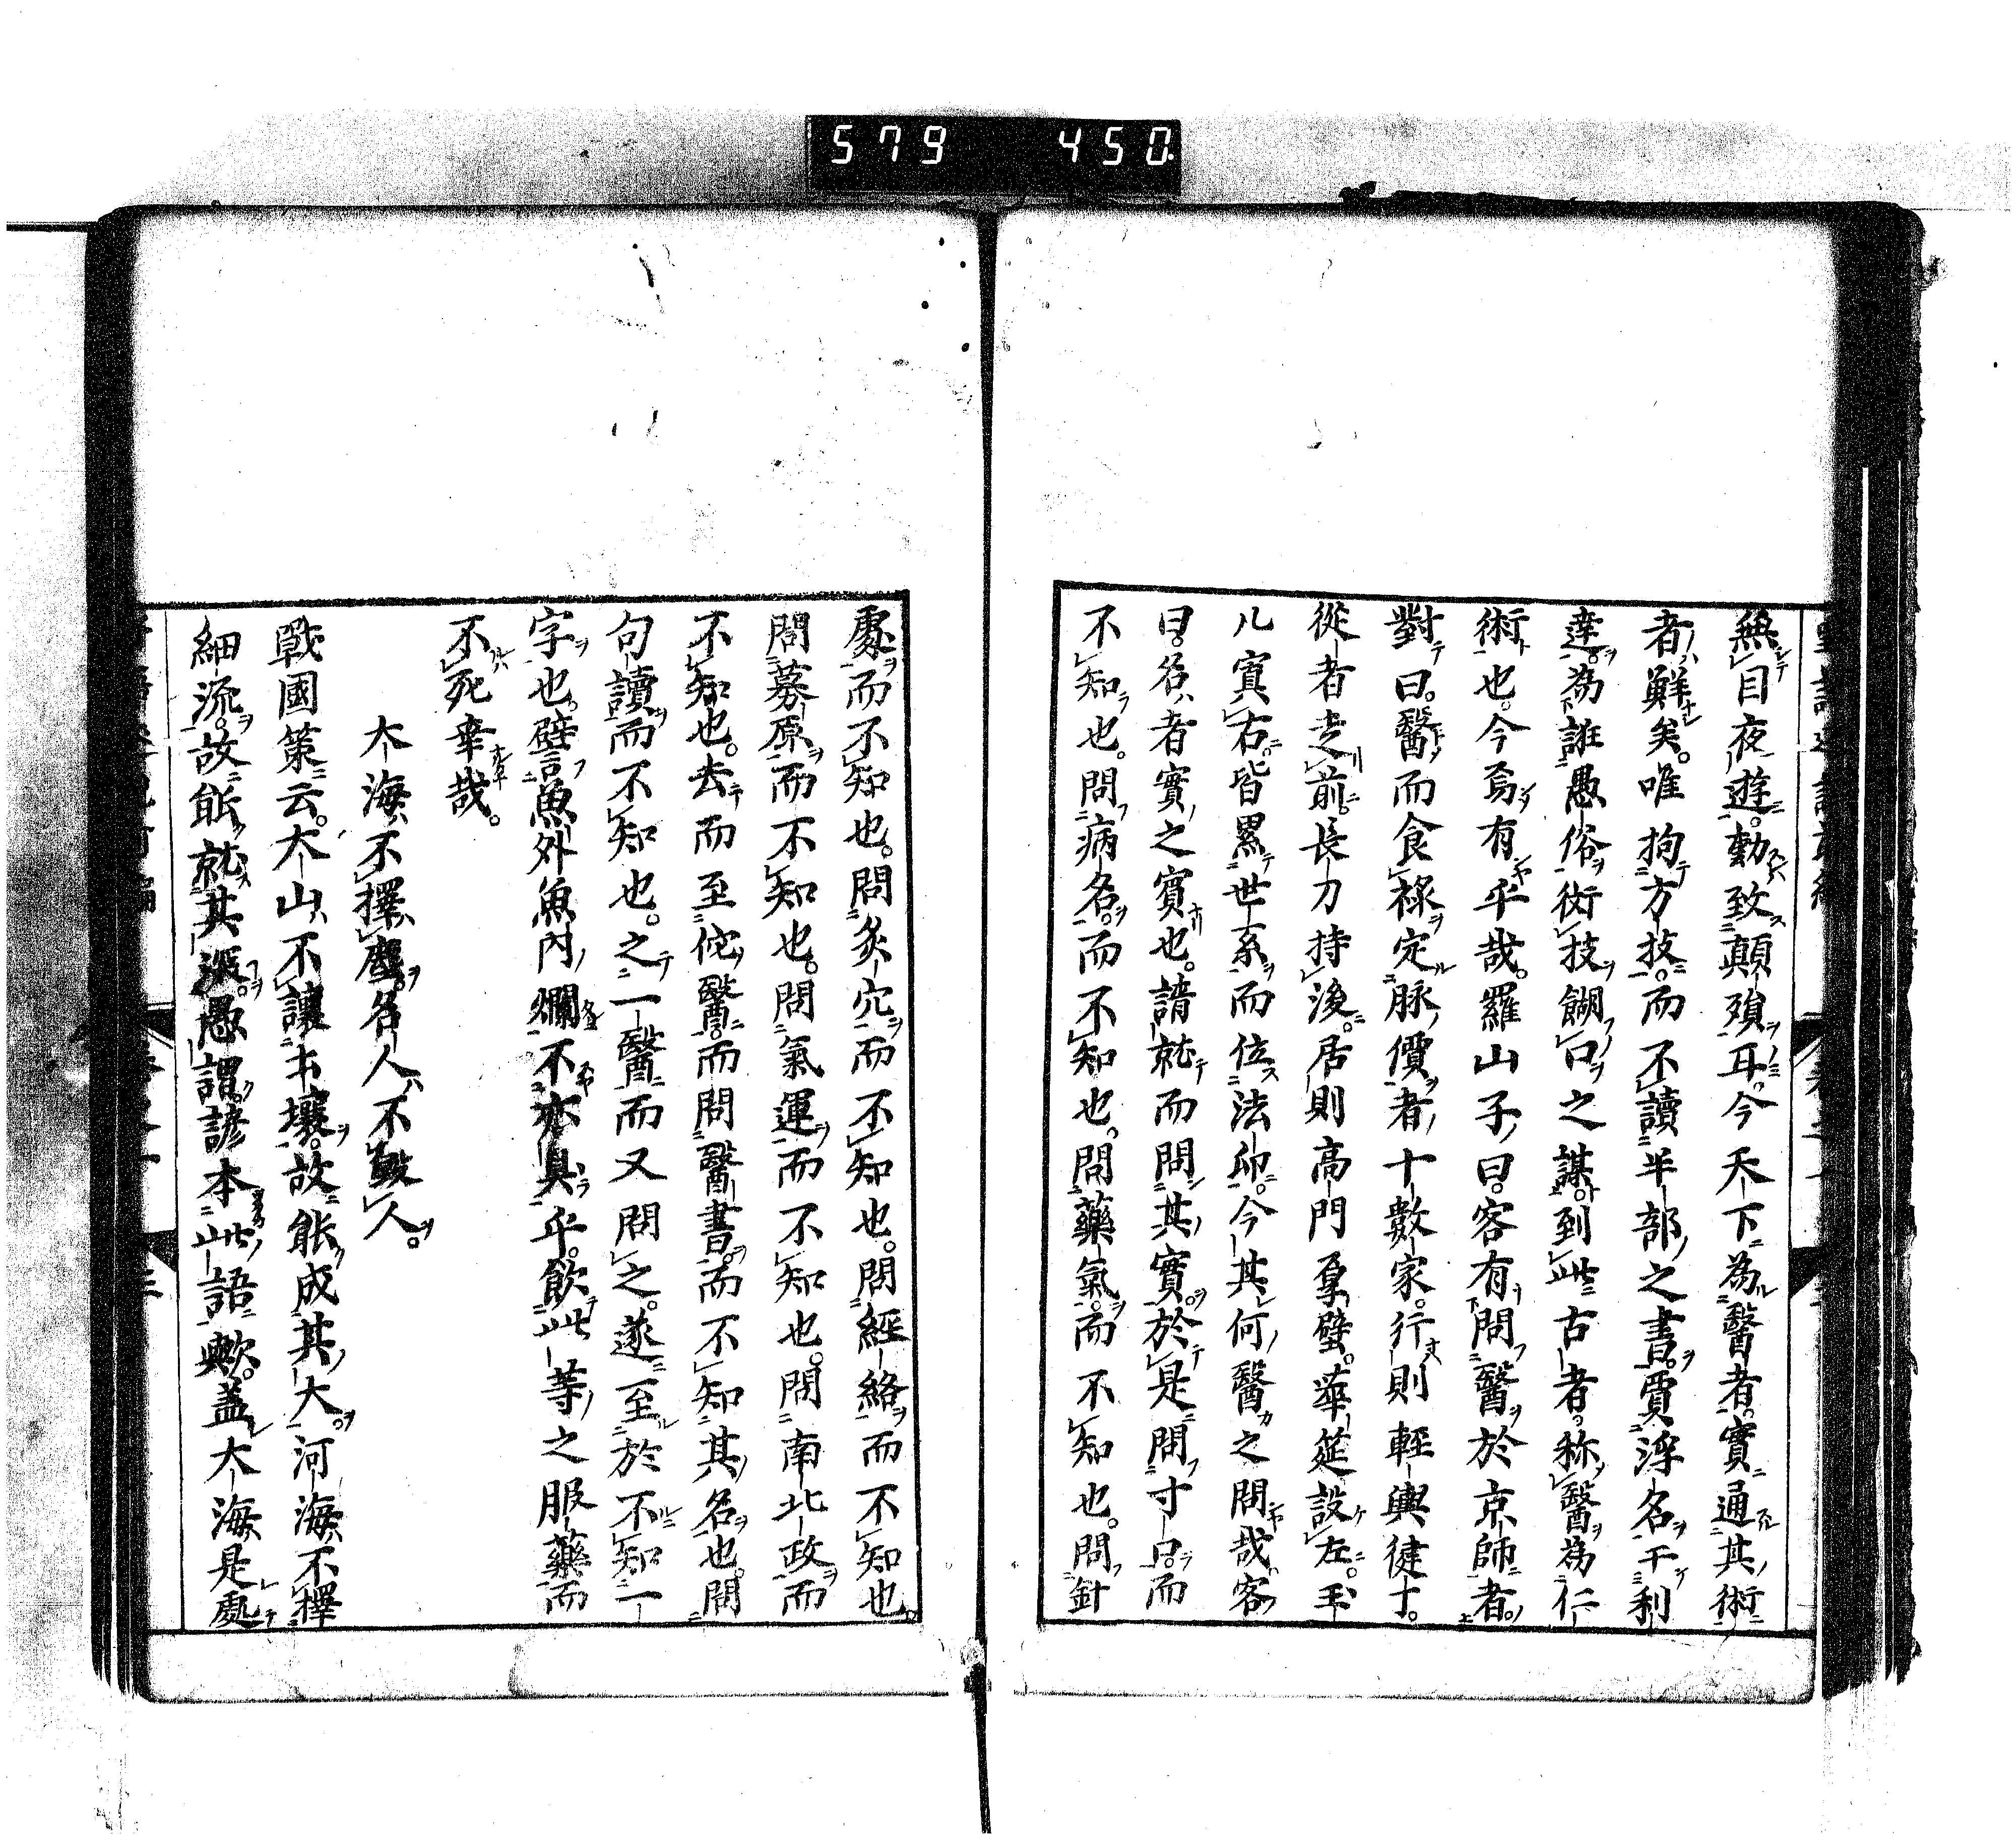 579 450
無目夜遊動致顛殞耳今天下為醫者實通其術
者鮮矣唯拘方技而不讀半部之書賈浮名干利
達為誑愚俗衒技餬口之謀到此古者称醫為仁
術也今焉有乎哉羅山子曰客有問醫於京師者
對曰醫而食禄定脉價者十數家行則輕輿徤丁
從者走前長刀持後居則高門堊壁華筵設左玉
儿寘右皆累世系而位法印今其何醫之問哉客
曰名者實之賓也請就而問其實於是問寸口而
不知也問病名而不知也問藥氣而不知也問針
處而不知也問灸穴而不知也問經絡而不知也
問募原而不知也問氣運而不知也問南北政而
不知也去而至佗醫而問醫書而不知其名也問
句讀而不知也之一醫而又問之遂至於不知一
字也譬言魚外魚内爛不亦臭乎飲此等之服藥而
不死幸哉
大海不擇塵名人不毀人
戰國策云大山不讓土壤故能成其大河海不擇
細流故能就其深愚謂諺本此語歟盖大海是處